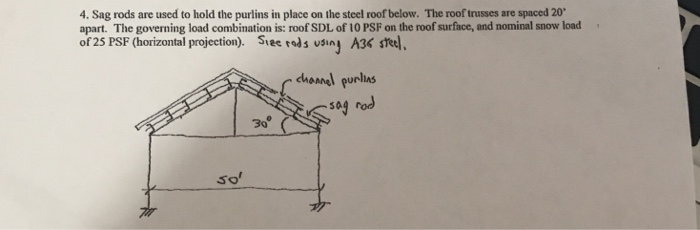 4. Sag rods are used to hold the purlins in place on the steel roof below. The roof trusses are spaced 20'
apart. The governing load combination is: roof SDL of 10 PSF on the roof surface, and nominal snow load
of 25 PSF (horizontal projection). Size rods using A36 steel.
channel purlins
sag rod
30°
50'